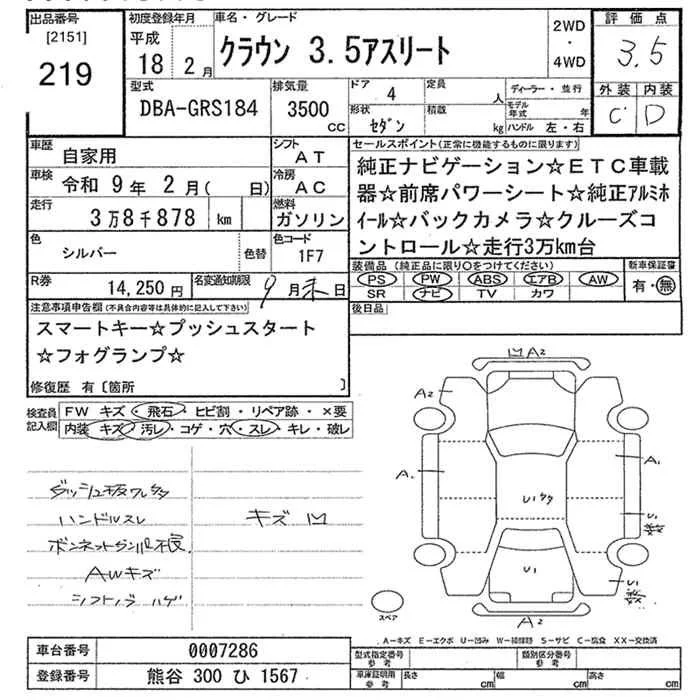 出品番号
[2151]
219
初度登録年月
平成
18 2月
車名・グレード
クラウン 3.5アスリート
2WD
・
4WD
評価点
3.5
外装 内装
C D
型式
DBA-GRS184
排気量
3500
CC
ドア 4
形状 セダン
定員 人
積載 kg
ディーラー・並行
モデル年式 年
ハンドル 左・右
車歴
自家用
シフト
AT
車検 令和 9年 2月( 日)
冷房
AC
走行
3万8千878 km
燃料
ガソリン
色
シルバー
色替
色コード
1F7
R券
14,250円
名変通知期限
9月末日
セールスポイント(正常に機能するものに限ります)
純正ナビゲーション☆ETC車載
器☆前席パワーシート☆純正アルミホ
イール☆バックカメラ☆クルーズコ
ントロール☆走行3万km台
装備品(純正品に限り○をつけてください)
PS PW ABS エアB AW
SR ナビ TV カワ
新車保証書
有・無
後日品
注意事項申告欄(不具合内容等は具体的に記入して下さい)
スマートキー☆プッシュスタート
☆フォグランプ☆
修復歴 有〔箇所 〕
検査員
記入欄
FW キズ・飛石・ヒビ割・リペア跡・×要
内装 キズ・汚レ・コゲ・穴・スレ・キレ・破レ
ダッシュ板ワレ多
ハンドルスレ
キズ凹
ボンネットダンパ不良
AWキズ
シフトノブハゲ
凹A2
A2
A1
A1
U1多
U1
U1
U1
A2
スペア
A-キズ E-エクボ U-凹み W-補修跡 S-サビ C-腐食 XX-交換済
車台番号
0007286
登録番号
熊谷 300 ひ 1567
型式指定番号
参考
類別区分番号
参考
車庫証明用
参考
長さ cm
幅 cm
高さ cm